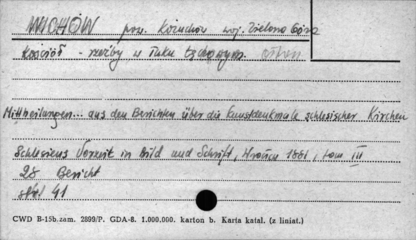 MIOHÓW pow. Kożuchów woj. Zielona Góra
Kościół - rzeźby w łuku tęczowym
Mittheilungen... aus den Berichten über die Kunstdenkmale schlesischer Kirchen
Schlesiens Vorzeit in Bild und Schrift, Wrocław 1881, tom III
28 Bericht
str. 41
CWD B-15b zam. 2899/P. GDA-8. 1.000.000. karton b. Karta katal. (z liniat.)